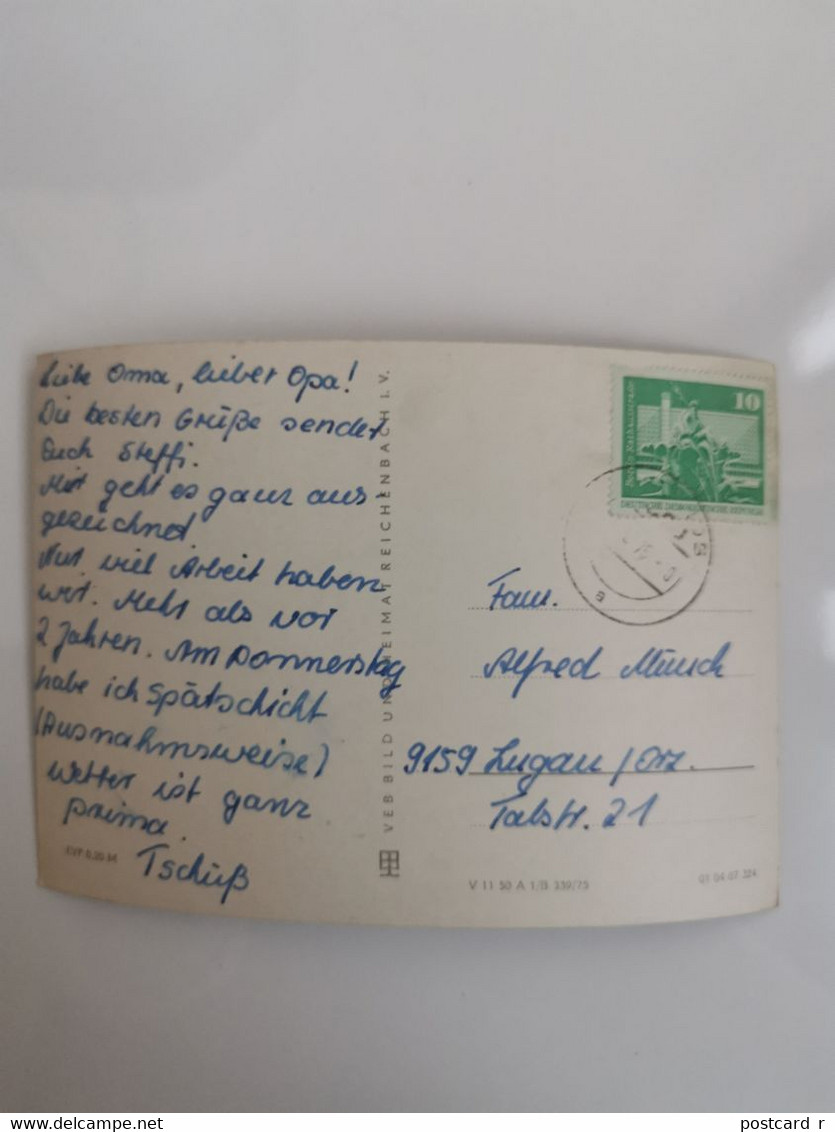 Liebe Oma, lieber Opa!
Die besten Grüße sendet
Euch Steffi.
Mir geht es ganz aus-
gezeichnet
Nur viel Arbeit haben
wir. Mehr als vor
2 Jahren. Am Donnerstag
habe ich Spätschicht
(Ausnahmsweise)
Wetter ist ganz
prima.
Tschüß
EVP 0,20 M
VEB BILD UND HEIMAT REICHENBACH I. V.
10
DEUTSCHE DEMOKRATISCHE REPUBLIK
Fam.
Alfred Münch
9159 Lugau / Erz.
Talstr. 21
V 11 50 A 1/B 339/75
01 04 07 324
delcampe.net
postcard_r